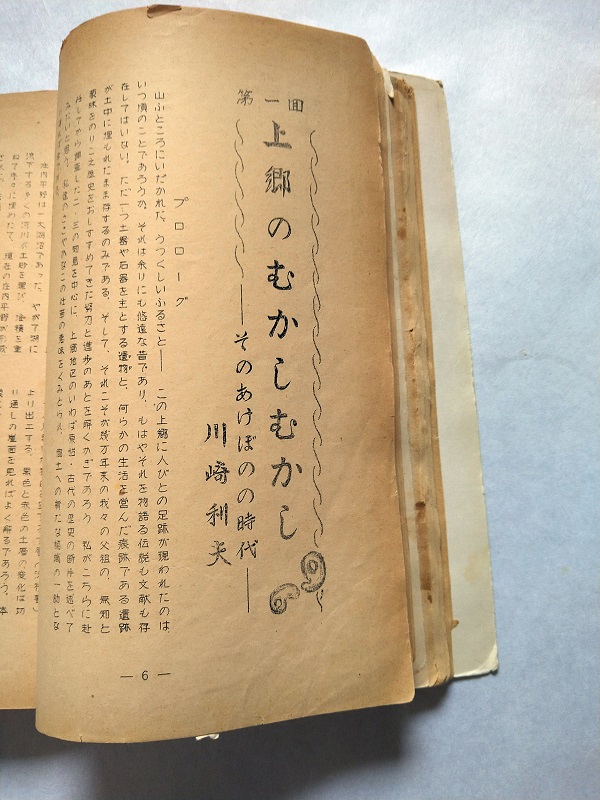 第一回
上郷のむかしむかし
――そのあけぼのの時代――
川崎利夫
プロローグ
山ふところにいだかれた、うつくしいふるさと――この上郷に人びとの足跡が現われたのは、
いつ頃のことであろうか。それは余りにも悠遠な昔であり、もはやそれを物語る伝説も文献も存
在してはいない。ただ一つ土器や石器を主とする遺物と、何らかの生活を営んだ痕跡である遺跡
が土中に埋もれたまま存するのみである。そして、それこそが幾万年来の我々の父祖の、無知と
蒙昧をのりこえ歴史をおしすすめてきた努力と進歩のあとを解くかぎであろう。私がこちらに赴
任してから調査した二・三の知見を中心に、上郷地区のいわば原始・古代の歴史の断片を述べて
― 6 ―
庄内平野は一大湖沼であった。やがて湖に
流下する多くの河川が土砂を運び、
現在の庄内平野が形成
より出土する。黒色と赤色の土層の変化は切
り通しの崖面を見ればよく解るであろう。本